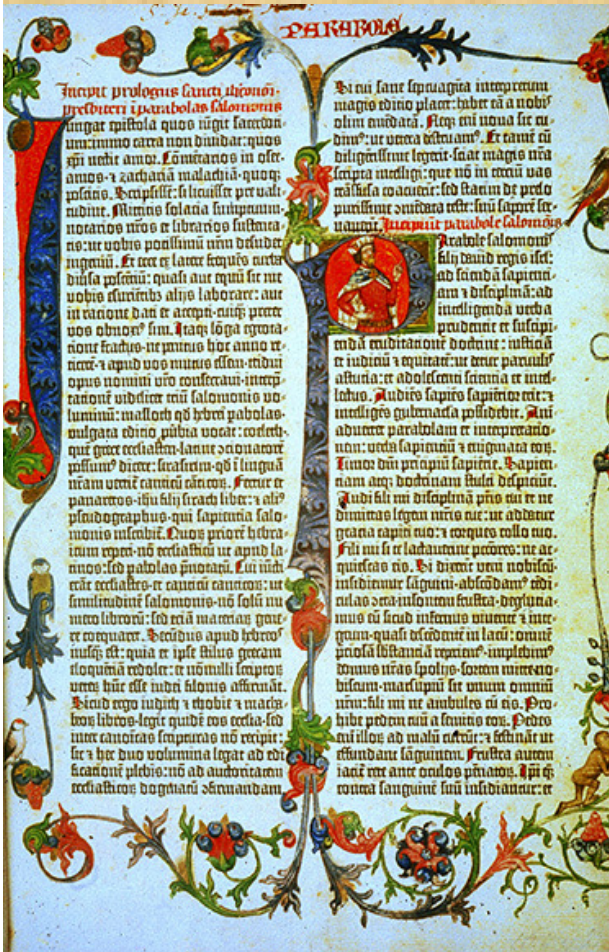 PARABOLE
Incipit prologus sancti iheronimi
presbiteri ī parabolas salomonis
Iungat epistola quos iūgit sacerdoti-
um: immo carta non diuidat: quos
xp̄i nectit amor. Cōmētarios in osee-
amos- & zachariā malachiā- quoq;
poscitis. Scripsissē: si licuisset pre vali-
tudine. Mittitis solacia sumptuum-
notarios nr̄os et librarios sustenta-
tis: ut vobis potissimū nr̄m desudet
ingeniū. Et ecce ex latere frequēs turba
diūsa poscētiū: quasi aut equū sit me
vobis esurientib; alijs laborare: aut
in ratione dati et accepti- cuiq; preter
vos obnoxi9 sim. Itaq; lōga egrota-
tione fractus- ne penitus hoc anno re-
ticerē- & apud vos mutus essem- tridui
opus nomini vr̄o consecraui- interp-
tationē videlicet triū salomonis vo-
luminū: masloth qd̄ hebrei pabolas-
vulgata editio pūbia vocat: coeleth-
quē grece ecclesiasten- latine ꝯcionatorē
possum9 dicere: sirasirim- qd̄ ī linguā
nr̄am vertit̄ canticū cāticoꝝ. Fertur et
panaretos- ihu filij sirach liber: & ali9
pseudographus- qui sapientia salo-
monis inscribit̄. Quoꝝ priorē hebra-
icum reperi- nō ecclesiasticū ut apud la-
tinos: sed pabolas p̄notatū. Cui iūcti
erāt ecclesiastes- et canticū canticoꝝ: ut
similitudinē salomonis- nō solū nu-
mero librorū: sed etiā materiaꝝ gene-
re coequaret. Secūdus apud hebreos
nusq̄ est: quia et ipse stilus grecam
eloquētiā redolet: et nōnulli scriptoꝝ
veteꝝ hūc esse iudei filonis affirmāt.
Sicud ergo iudith & thobie & macha-
beoꝝ libros- legit quidē eos ecclīa- sed
inter canonicas scripturas nō recipit:
sic & hec duo volumina legat ad edi-
ficationē plebis: nō ad auctoritatem
ecclesiasticoꝝ dogmatū ꝯfirmandam
Si cui sane septuaginta interpretum
magis editio placet: habet eā a nobis
olim emēdatā. Neq; eni noua sic cu-
dim9: ut vetera destruam9. Et tamē cū
diligētissime legerit- sciat magis nr̄a
scripta intelligi: que nō in terciū vas
trāsfusa coacuerīt: sed statim de prelo
purissime ꝯmēdata teste: suū saporē ser-
uauerīt. Incipiūt parabole salomōis
Parabole salomonis
filij dauid regis isrl̄:
ad sciendā sapienti-
am & disciplinā: ad
intelligenda verba
prudentie et suscipi-
endā eruditationē doctrine: iusticiā
et iudiciū & equitatē: ut detur paruulis
astutia: et adolescenti scientia et intel-
lectus. Audiēs sapiēs sapientior erit: &
intelligēs gubernacla possidebit. Ani-
aduertet parabolam et interpretatio-
nem: verba sapientiū & enigmata eoꝝ.
Timor dn̄i principiū sapiētie. Sapien-
tiam atq; doctrinam stulti despiciūt.
Audi fili mi disciplinā pr̄is tui et ne
dimittas legem mr̄is tue: ut addatur
gracia capiti tuo: & torques collo tuo.
Fili mi si te lactauerint pctōres: ne ac-
quiescas eis. Si dixerīt veni nobiscū-
insidiemur sāguini- abscōdam9 tēdi-
culas ꝯtra insontem frustra- deglutia-
mus eū sicud infernus viuentē & inte-
grum- quasi descēdētē in lacū: omnē
p̄ciosā sb̄stantiā reperiem9- implebim9
domus nr̄as spolijs- sortem mitte no-
biscum- marsupiū sit vnum omniū
nr̄m: fili mi ne ambules cū eis. Pro-
hibe pedem tuū a semitis eoꝝ. Pedes
eni illoꝝ ad malū currūt: & festināt ut
effundant sāguinem. Frustra autem
iacit̄ rete ante oculos pēnatoꝝ. Ip̄i q;
contra sanguinē suū insidiantur: et